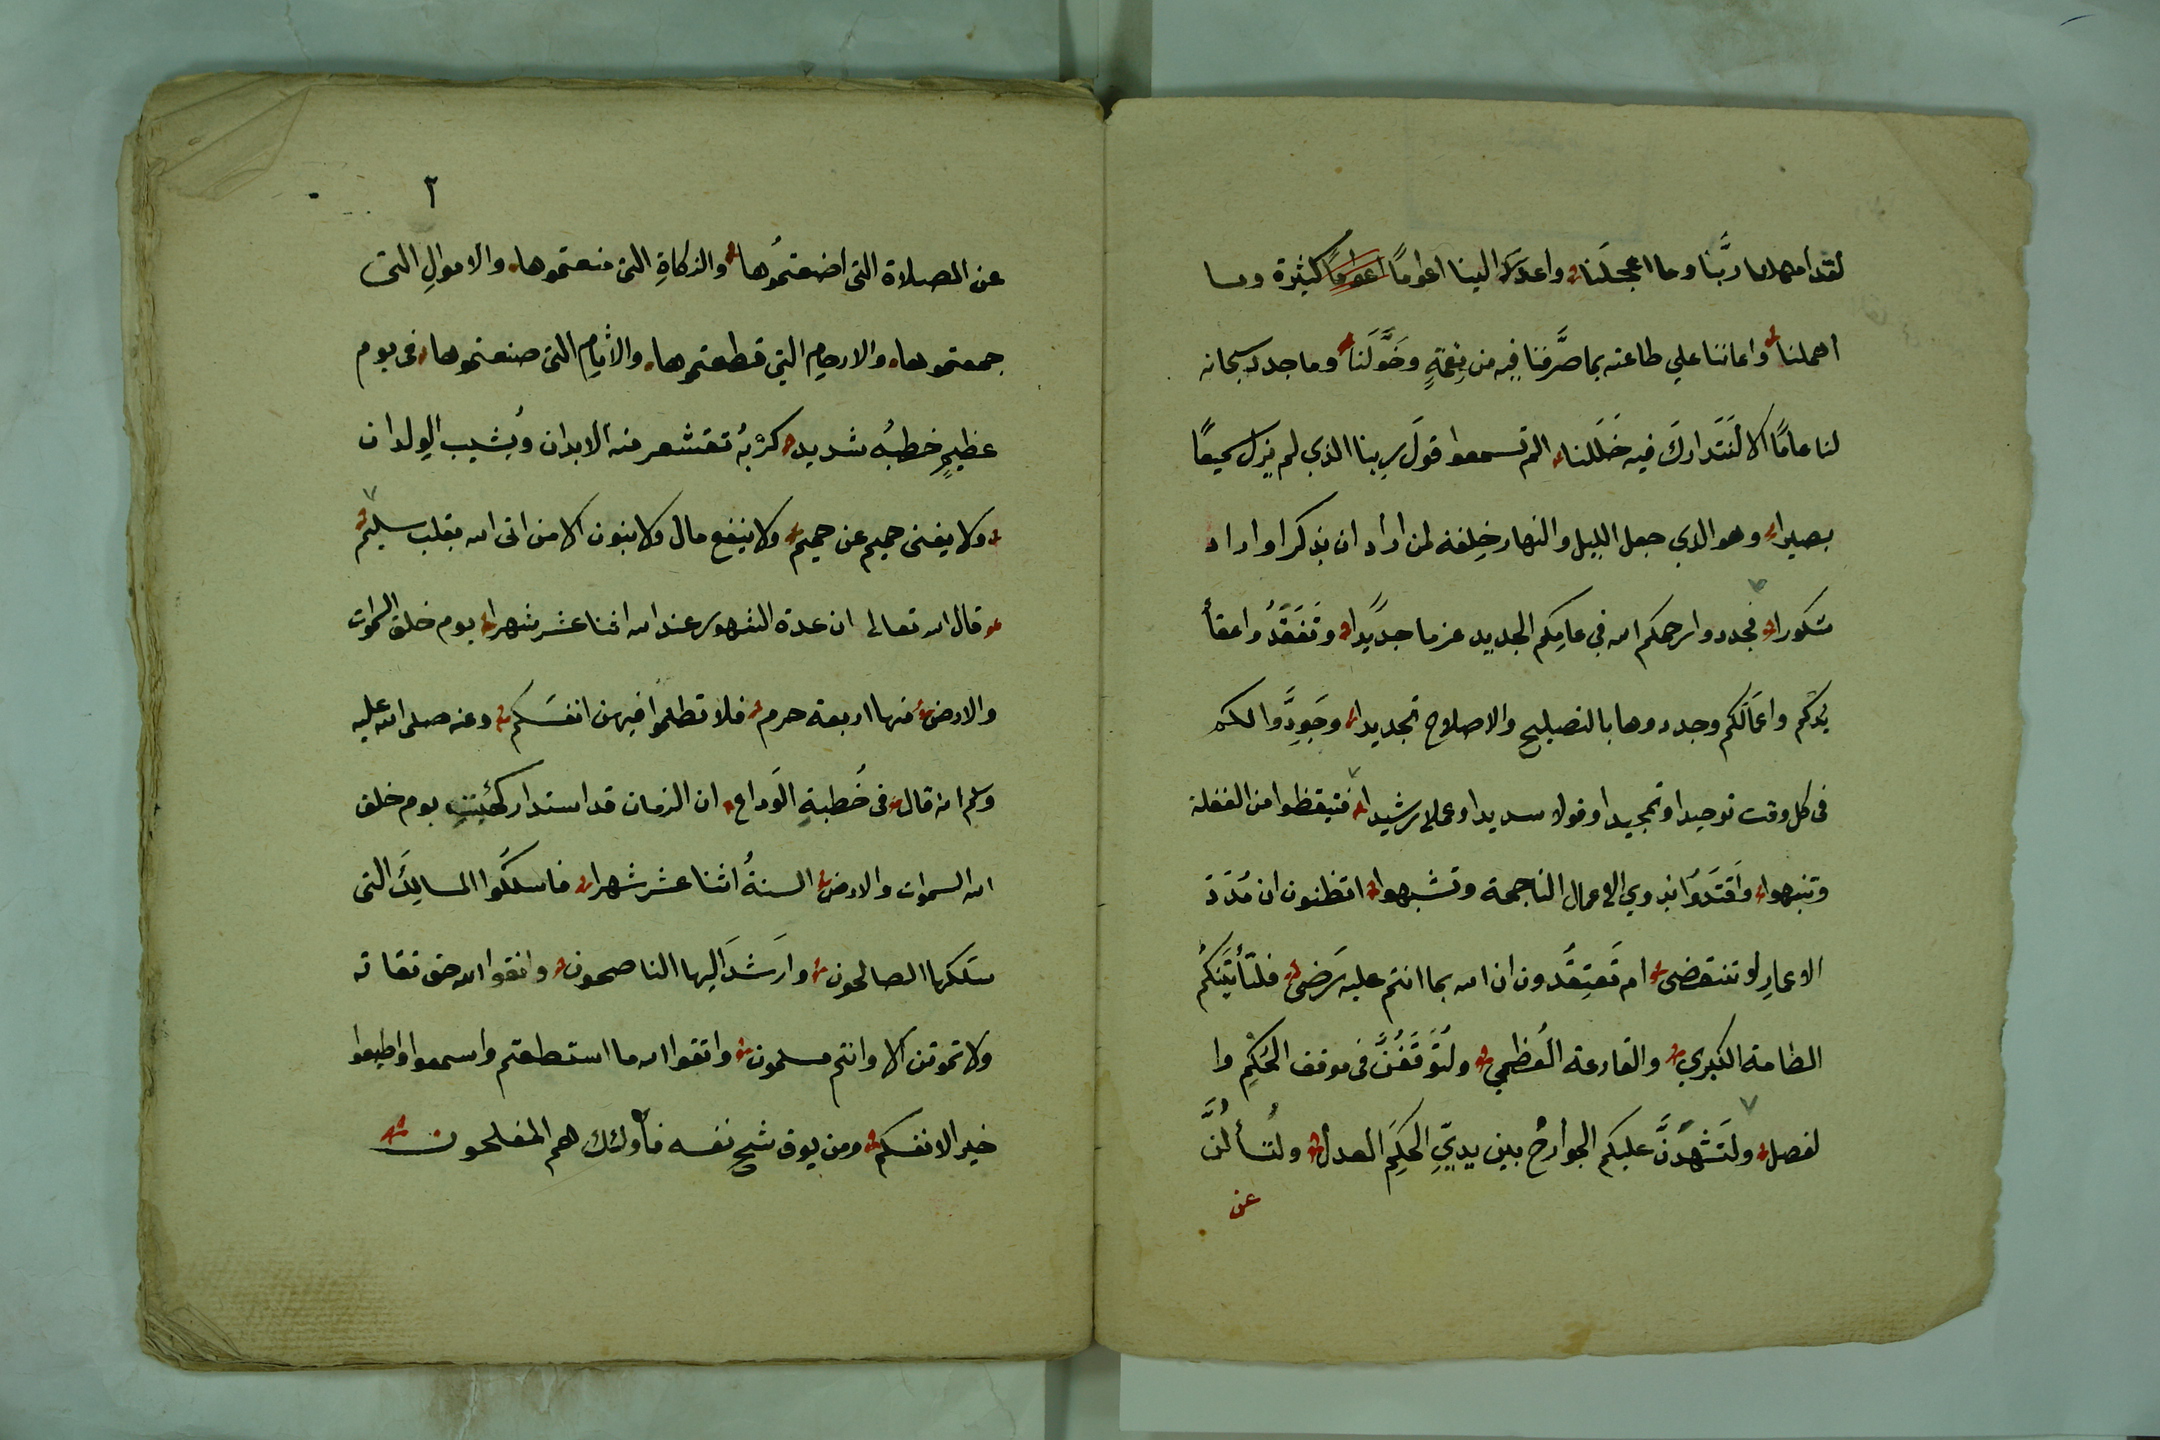 لقد امهلنا ربَّنا وما اعجلَنا واعذَرَ الينا اعوامًا اعوامًا كثيرة وما
اهملنا واعاننا علي طاعته بما صَرَّفنا فيه من نِعَمَةٍ وخَوَّلَنا وما جدد سبحانه
لنا عامًا الا لنَتَدارَكَ فيه خَلَلنا الم تسمعوا قولَ ربنا الذي لم يزل سميعًا
بصيرا وهو الذي جعل الليل والنهار خِلفة لمن اراد ان يذكر او اراد
شكورا فجددوا رحمكم الله في عامِكم الجديد عزما جديدًا وتَفَقَّدُوا عقأ
يُدكم واعمالكم وجددوها بالتصليح والاصلاح تجديدا وجَوِدَّوا لكم
في كل وقت توحيدا وتمجيدا وقولا سديدا وعملا رشيدا فتيقظوا من الغفلة
وتنبهوا واَقتَدُوا بذوي الاعمال الناجحة وتشبهوا اتظنون ان مُدَدَ
الاعمارِ لا تنقضى ام تَعتِقدُون ان الله بما انتم عليه يَرضى فلتأتيَنكُم
الطامة الكبري والقارعة العُظمي ولتُوقَفُنَّ فى موقف الحُكْمِ وا
لفصل ولتَشهَدَنَّ عليكم الجوارحُ بين يديِّ الحَكَمِ العدل ولتُسألُنَّ
عن
٢
عن الصلاة التى اضعتمُوها والزكاةِ التى منعتموها والاموالِ التى
جمعتموها والارحامِ التِي قطعتموها والآثامِ التى صنعتموها فى يوم
عظيمٍ خطبُه شديد كربُهُ تقشعر منه الابدان ويُشيب الوِلدان
ولا يغنى حميم عن حميم ولا ينفع مال ولا بنون الا من اتى الله بقلب سليم
قال الله تعالى ان عدة الشهور عند الله اثنا عشر شهرا يوم خلق السموات
والارض منها اربعة حرم فلا تظلموا فيهن انفسَكم وعنه صلى الله عليه
وسلم انه قال فى خُطبةِ الَوداع ان الزمان قد استدار كهَيئتِهِ يوم خلق
الله السموات والارض السنةُ اثنا عشر شهرا فاسلكُوا المسالِكَ التى
سَلكها الصالحون وارَشدَ اليها الناصحون واتقوا الله حق تقاته
ولا تموتن الا وانتم مسلمون واتقوا الله ما استطعتم واسمعوا واطيعوا
خير الانفسكم ومن يوق شح نفسه فأولئك هم المفلحون